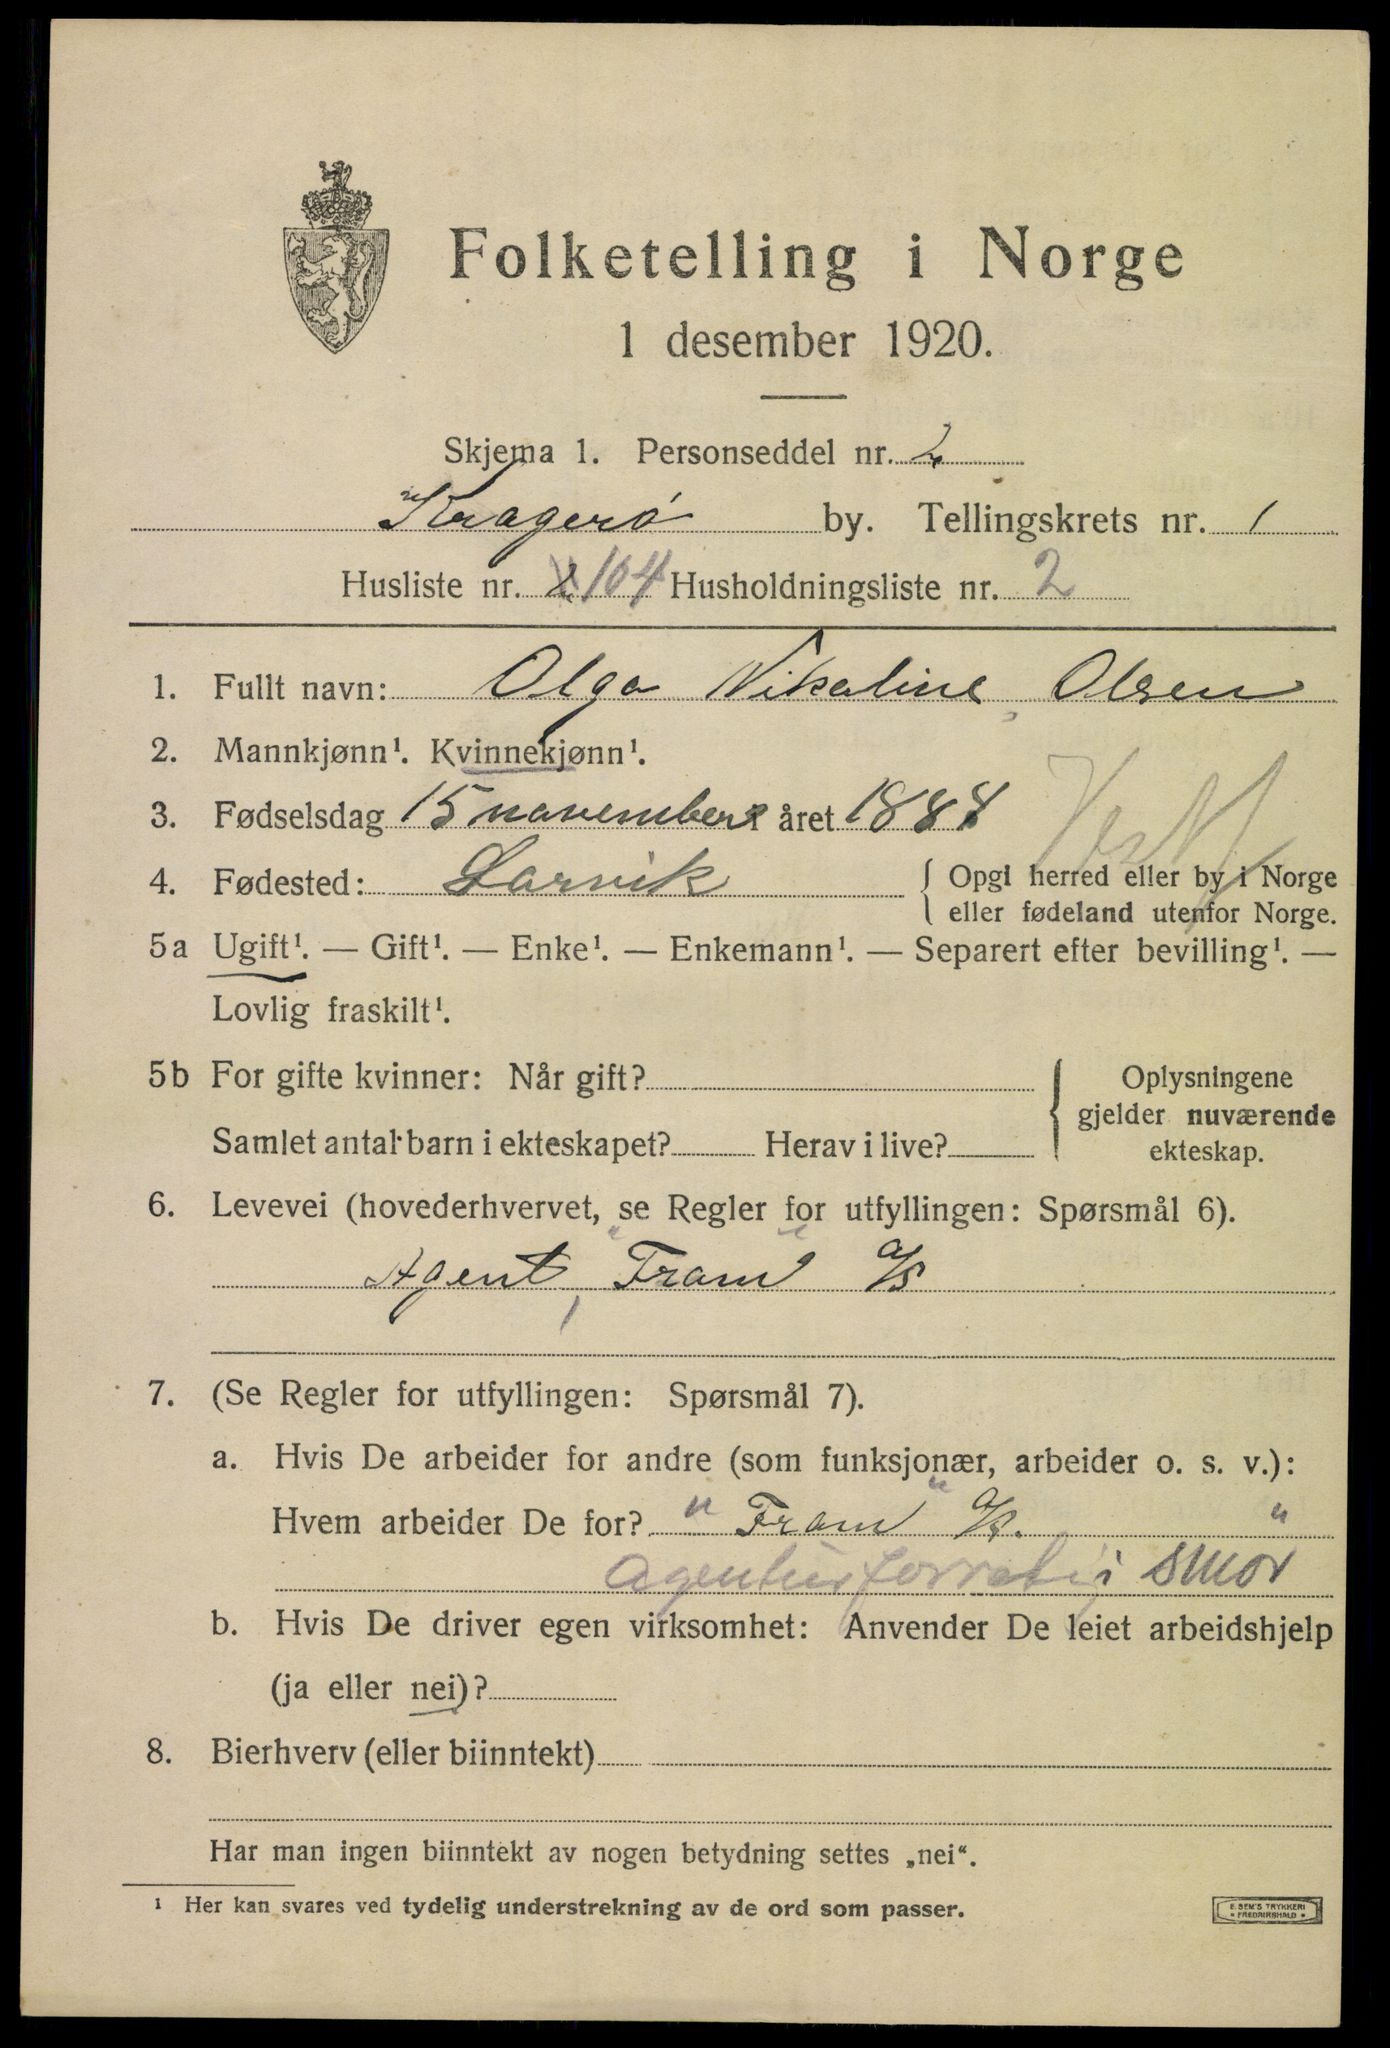 Folketelling i Norge
1 desember 1920.
Skjema 1. Personseddel nr. 2
Kragerø by. Tellingskrets nr. 1
Husliste nr. 104 Husholdningsliste nr. 2
1. Fullt navn: Olga Nikoline Olsen
2. Mannkjønn¹. Kvinnekjønn¹.
3. Fødselsdag 15 november i året 1884
4. Fødested: Larvik { Opgl herred eller by i Norge
eller fødeland utenfor Norge.
5a Ugift¹. — Gift¹. — Enke¹. — Enkemann¹. — Separert efter bevilling¹. —
Lovlig fraskilt¹.
5b For gifte kvinner: Når gift? { Oplysningene
gjelder nuværende
Samlet antal barn i ekteskapet? Herav i live?
ekteskap.
6. Levevei (hovederhvervet, se Regler for utfyllingen: Spørsmål 6).
Agent, "Fram" A/S
7. (Se Regler for utfyllingen: Spørsmål 7).
a. Hvis De arbeider for andre (som funksjonær, arbeider o. s. v.):
Hvem arbeider De for? "Fram" A/S. "
Agenturforretn i smør
b. Hvis De driver egen virksomhet: Anvender De leiet arbeidshjelp
(ja eller nei)?
8. Bierhverv (eller biinntekt)
Har man ingen biinntekt av nogen betydning settes „nei“.
¹ Her kan svares ved tydelig understrekning av de ord som passer.
E. SEM'S TRYKKERI
* FREDRIKSHALD *